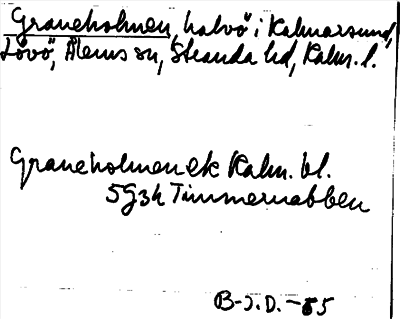 Graneholmen, halvö i Kalmarsund,
Lövö, Ålems sn, Stranda hd, Kalm. l.
Graneholmen ek Kalm. bl.
5G3h Timmernabben
B-J.D. -85